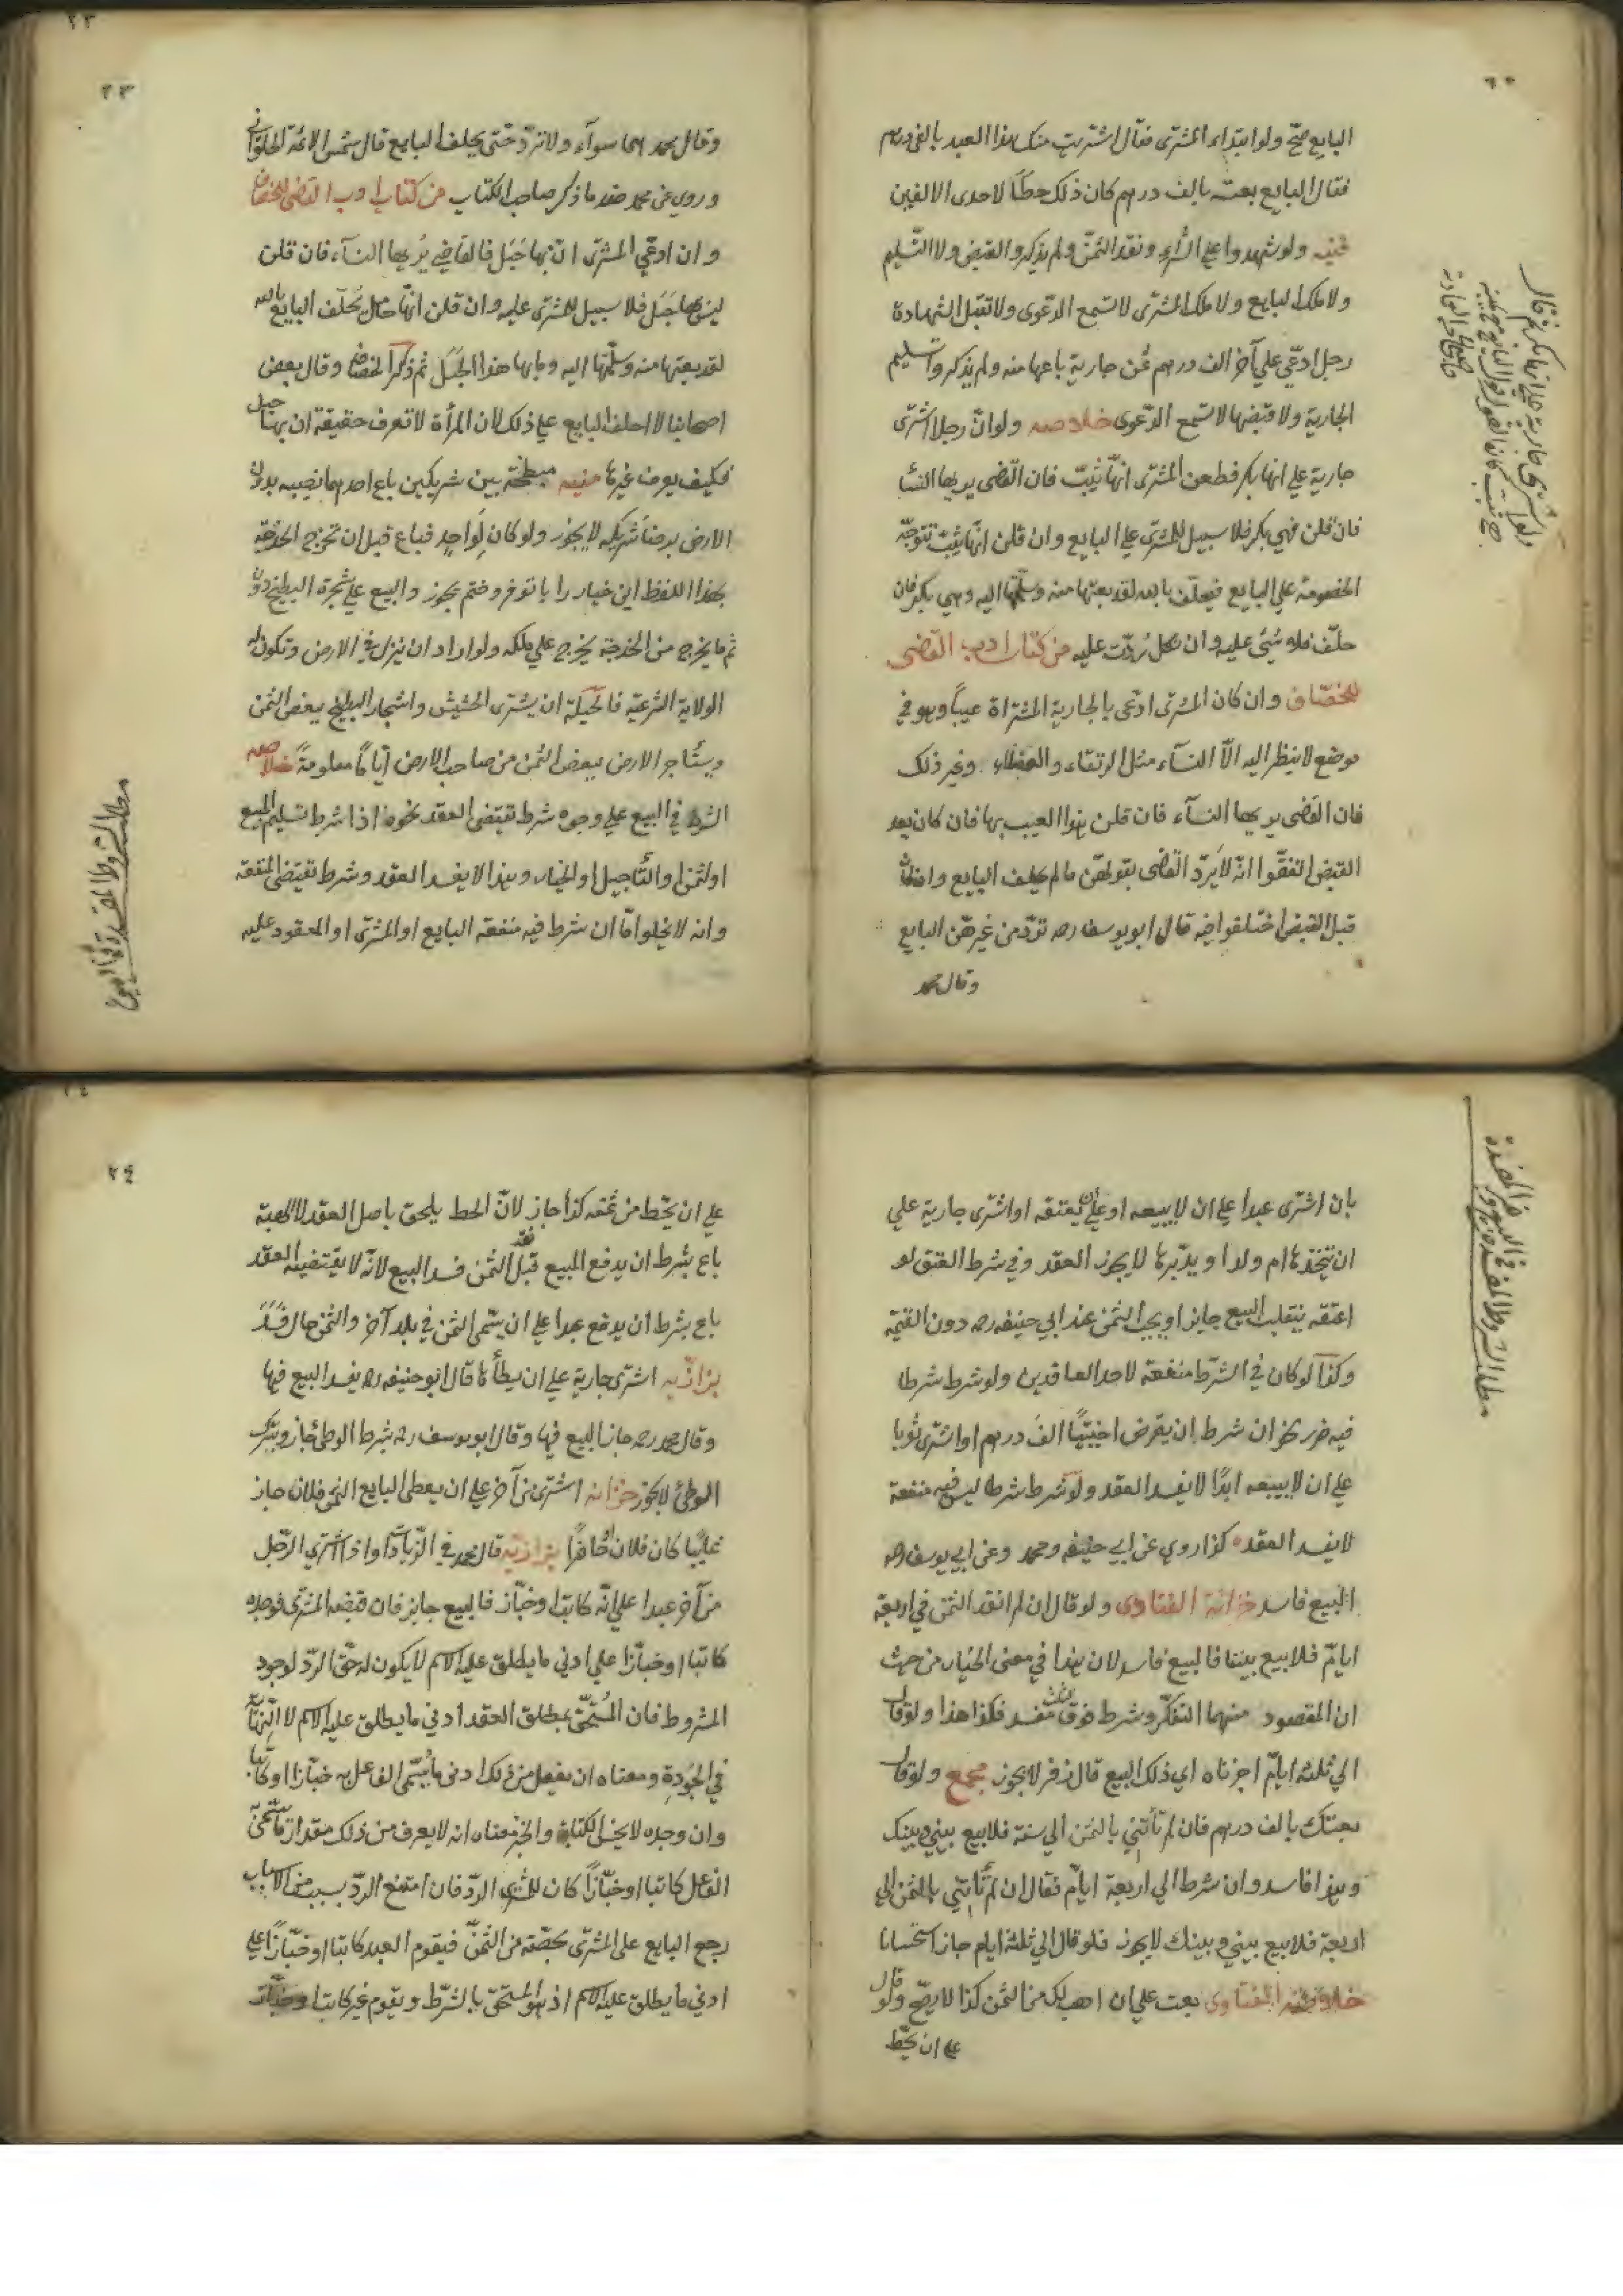 البايع صحّ ولو ابتداء المشترى فقال اشتريت منك هذا العبد بالفى درهم
فقال البايع بعته بالف درهم كان ذلك حطّا لاحدى الالفين
ولو شهدوا على الشراء ونقد الثمن ولم يذكروا القبض ولا التسليم
ولا ملك البايع ولا ملك المشترى لا تسمع الدعوى ولا تقبل الشهادة
رجل ادّعى على آخر الف درهم ثمن جارية باعها منه ولم يذكر وا تسليم
الجارية ولا قبضها لا تسمع الدعوى خلاصه ولو انّ رجلا اشترى
جارية على انها بكر فطعن المشترى انّها ثيّب فان القضى يريها النسا
فان قلن هي بكر فلا سبيل للمشترى على البايع وان قلن انّها ثيب تتوجّه
الخصومة على البايع فيحلّف بالله لقد بعتها منه وسلّمتها اليه وهي بكر فان
حلّف فلا شئ عليه وان نكل رُدّت عليه من كتاب ادب القضى
للخصّاف وان كان المشترى ادّعى بالجارية المشتراة عيباً وهو في
موضع لا ينظر اليه الّا النسآء مثل الرتقاء والعفلاء وغير ذلك
فان القضى يريها النسآء فان قلن هذا العيب بها فان كان بعد
القبض اتفقّوا انّه لا يردّ القضى بقولهنّ ما لم يحلف البايع واما
قبل القبض اختلفوا فيه قال ابو يوسف رحه تردّ من غير البايع
وقال محمد
٢٣
وقال محمد هما سوآء ولا تردّ حتّى يحلف البايع قال شمس الائمة الحلوانى
وروي عن محمد ضد ما ذكر صاحب الكتاب من كتاب ادب القضى للخصاف
وان ادعّي المشترى انّ بها حَبَل فالقاضي يُريها النسآء فان قلن
ليس بها حَبَل فلا سبيل للمشترى عليه وان قلن انّها حامل يُحلّف البايع بالله
لقد بعتها منه وسلّمتها اليه وما بها هذا الحَبَل ثم ذكر الخصاف وقال بعض
اصحابنا لا احلف البايع على ذلك لان المرأة لا تعرف حقيقة ان بها حبل
فكيف يعرف غيرها منيه مبطخة بين شريكين باع احدهما نصيبه بدون
الارض برضا شريكه لا يجوز ولو كان لواحدٍ فباع قبل ان تخرج الحدجة
بهذا اللفظ اين خيار را با تو فروختم يجوز والبيع على شجرة البطيخ دون
ثم ما يخرج من الحدجة يخرج على ملكه ولو اراد ان ينزل في الارض وتكون له
الولاية الشرعية فالحيلة ان يشترى الحشيش واشجار البطيخ ببعض الثمن
ويستاجر الارض ببعض الثمن من صاحب الارض ايّاما معلومةً خلاصه
الشرط في البيع على وجوه شرط تقتضى العقد نحوه اذا شرط تسليم المبيع
او الثمن او التّأجيل او الخيار وهذا لا يفسد العقد وشرط
وانه لا يخلوا امّا ان شرط فيه منفعة البايع او المشترى او المعقود عليه
مطلب الشروط المفسدة في البيع
مطلب الشروط المفسدة
بان اشترى عبدا على ان لا يبيعه او على ان يعتقه او اشترى جارية على
ان يتخذها ام ولد او يدبّرها لا يجوز العقد وفي شرط العتق لو
اعتقه ينقلب البيع جايز او يجب الثمن عند ابى حنيفه رحه دون القيمة
وكذا لو كان في الشرط منفعة لاحد العاقدين ولو شرط شرطا
فيه ضرر نحو ان شرط ان يقرض اجنبيّا الف درهم او اشترى ثوبا
على ان لا يبيعه ابدًا لا يفسد العقد ولو شرط شرطا ليس فيه منفعة
لا يفسد العقد كذا روي عن ابي حنيفه ومحمد وعن ابي يوسف رحه
البيع فاسد خزانة الفتاوى ولو قال ان لم انقد الثمن في اربعة
ايام فلا بيع بيننا فالبيع فاسد لان هذا في معنى الخيار من حيث
ان المقصود منهما التفكّر وشرط فوق الثلث مفسد فكذا هذا ولو قال
الي ثلثة ايام اجزناه اي ذلك البيع قال زفر لا يجوز مجمع ولو قال
بعتك بالف درهم فان لم تأتني بالثمن الي سنة فلا بيع بيني وبينك
وهذا فاسد وان شرط الي اربعة ايام فقال ان لم تأتني بالثمن الي
اربعة فلا بيع بيني وبينك لا يجوز فلو قال الي ثلثة ايام جاز استحسانا
خلاصة الفتاوى بعت على ان اهب لك من الثمن كذا لا يصحّ ولو قال
على ان يحّط
٢٤
على ان يحّط من ثمنه كذا جاز لانّ الحط يلحق باصل العقد لا الهبة
باع بشرط ان يدفع المبيع قبل نقد الثمن فسد البيع لانّه لا يقتضيه العقد
باع بشرط ان يدفع عبدا على ان يسّمى الثمن في بلد آخر والثمن حال فسد
بزازيه اشترى جارية على ان يطأها قال ابو حنيفه رحه يفسد البيع فيها
وقال محمد رحه جاز البيع فيها وقال ابو يوسف رحه شرط الوطئ جاز وبترك
الوطئ لا يجوز خزانه اشترى من آخر على ان يعطى البايع الثمن فلان جاز
غايبًا كان فلان او حاضرًا بزازيه قال محمد في الزيادات واذا اشترى الرّجل
من آخر عبدا على انّه كاتب او خبّاز فالبيع جايز فان قبضه المشترى فوجده
كاتبا او خبّازا على ادنى ما يطلق عليه الاسم لا يكون له حقّ الردّ لوجود
المشروط فان المُستحّق بمطلق العقد ادنى ما يطلق عليه الاسم لا النهاية
في الجَودة ومعناه ان يفعل من ذلك ادنى ما يُسمّى الفاعل به خبّازا او كاتبا
وان وجده لا يحسن الكتابة والخبز معناه انه لا يعرف من ذلك مقدار ما يسمّى
الفاعل كاتبا او خبّازًا كان للمشترى الردّ فان امتنع الردّ بسبب من الاسباب
رجع البايع على المشترى بحصّته من الثمنّ فيقوم العبد كاتبا او خبّازًا على
ادنى ما يطلق عليه الاسم اذ هو المستحق بالشرط ويقوم غير كاتبا وخبّاز